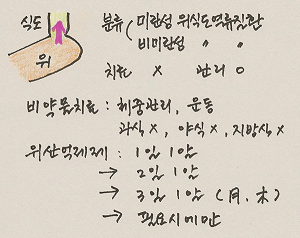 식도
위
분류 ( 미란성 위식도역류질환
비미란성 〃 〃
치료 × 관리 ○
비약물치료 : 체중관리, 운동
과식 ×, 야식 ×, 지방식 ×
위산억제제 : 1일 1알
→ 2일 1알
→ 3일 1알 (月, 木)
→ 필요시에만